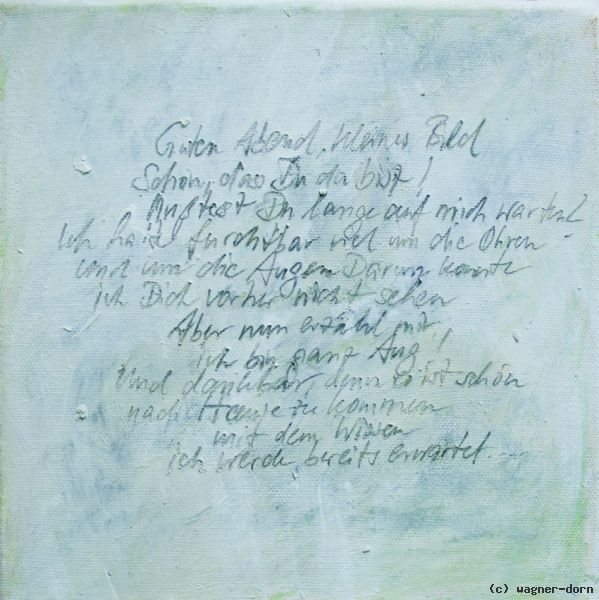 Guten Abend, kleines Bild
Schön, das Du da bist!
Mußtest Du lange auf mich warten?
Ich hatte furchtbar viel um die Ohren
und um die Augen Darum konnte
ich Dich vorher nicht sehen
Aber nun erzähl mir,
ich bin ganz Aug
Und dankbar, denn es ist schön
nach Hause zu kommen
mit dem Wissen
ich werde bereits erwartet...
(c) wagner-dorn